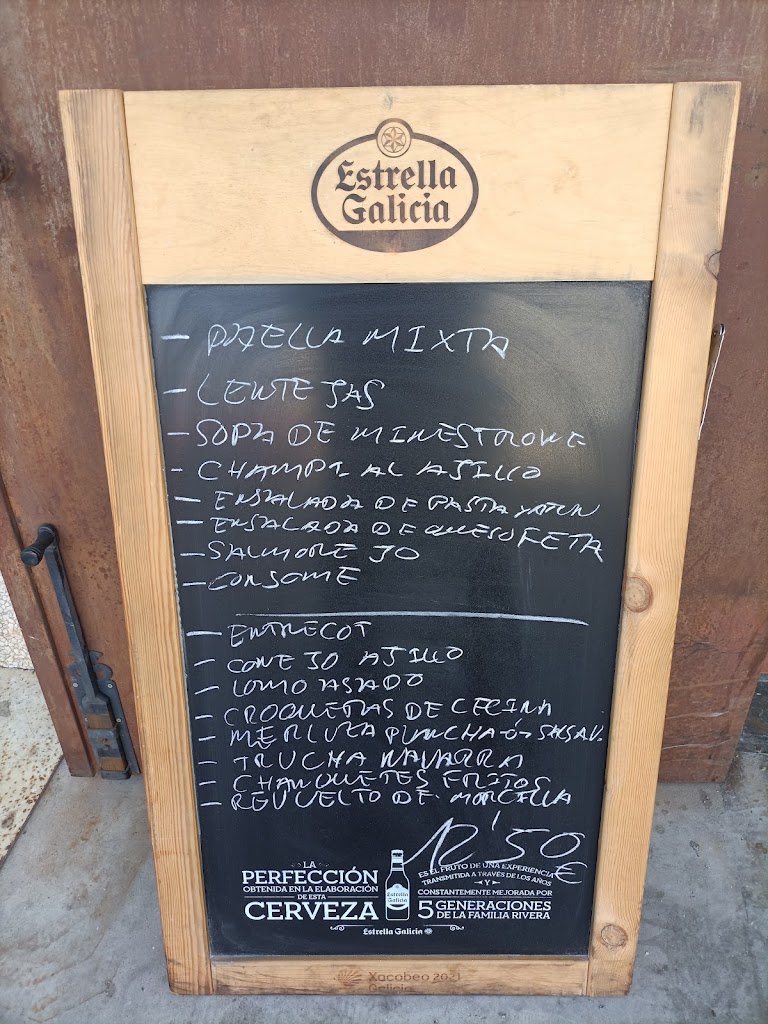 Estrella
Galicia
- PAELLA MIXTA
- LENTEJAS
- SOPA DE MINESTRONE
- CHAMPI AL AJILLO
- ENSALADA DE PASTA Y ATUN
- ENSALADA DE QUESO FETA
- SALMOREJO
- CONSOME
- ENTRECOT
- CONEJO AJILLO
- LOMO ASADO
- CROQUETAS DE CECINA
- MERLUZA PLANCHA Ó SALSA V.
- TRUCHA NAVARRA
- CHANQUETES FRITOS
- REVUELTO DE MORCILLA
12'50 €
LA
PERFECCIÓN
OBTENIDA EN LA ELABORACIÓN
DE ESTA
CERVEZA
Estrella
Galicia
ES EL FRUTO DE UNA EXPERIENCIA
TRANSMITIDA A TRAVÉS DE LOS AÑOS
Y
CONSTANTEMENTE MEJORADA POR
5 GENERACIONES
DE LA FAMILIA RIVERA
Estrella Galicia
Xacobeo 2021
Galicia